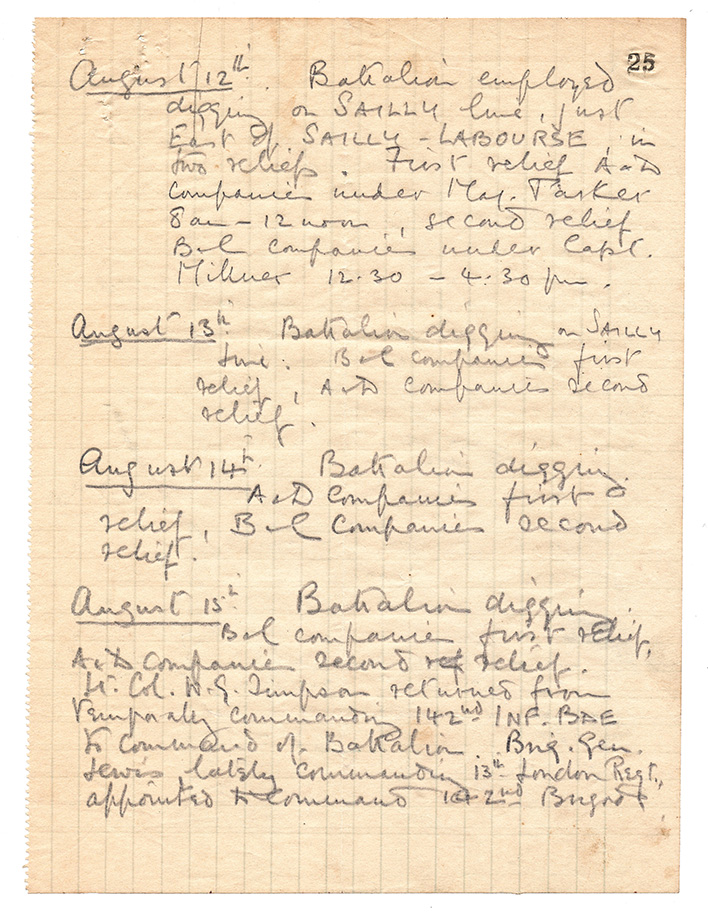 25
August 12th. Battalion employed
digging on SAILLY line, just
East of SAILLY-LABOURSE, in
two reliefs. First relief A & D
Companies under Maj. Parker
8 am - 12 noon, second relief
B & C companies under Capt.
Milner 12.30 - 4.30 pm.
August 13th Battalion digging on SAILLY
line. B & C companies first
relief, A & D companies second
relief.
August 14th Battalion digging.
A & D Companies first
relief, B & C Companies second
relief.
August 15th Battalion digging.
B & C companies first relief,
A & D Companies second relief.
Lt. Col. H.G. Simpson returned from
temporaly commanding 142nd INF. BDE
to command of Battalion. Brig. Gen.
Lewis, lately commanding 13th London Regt.,
appointed to command 142nd Brigade